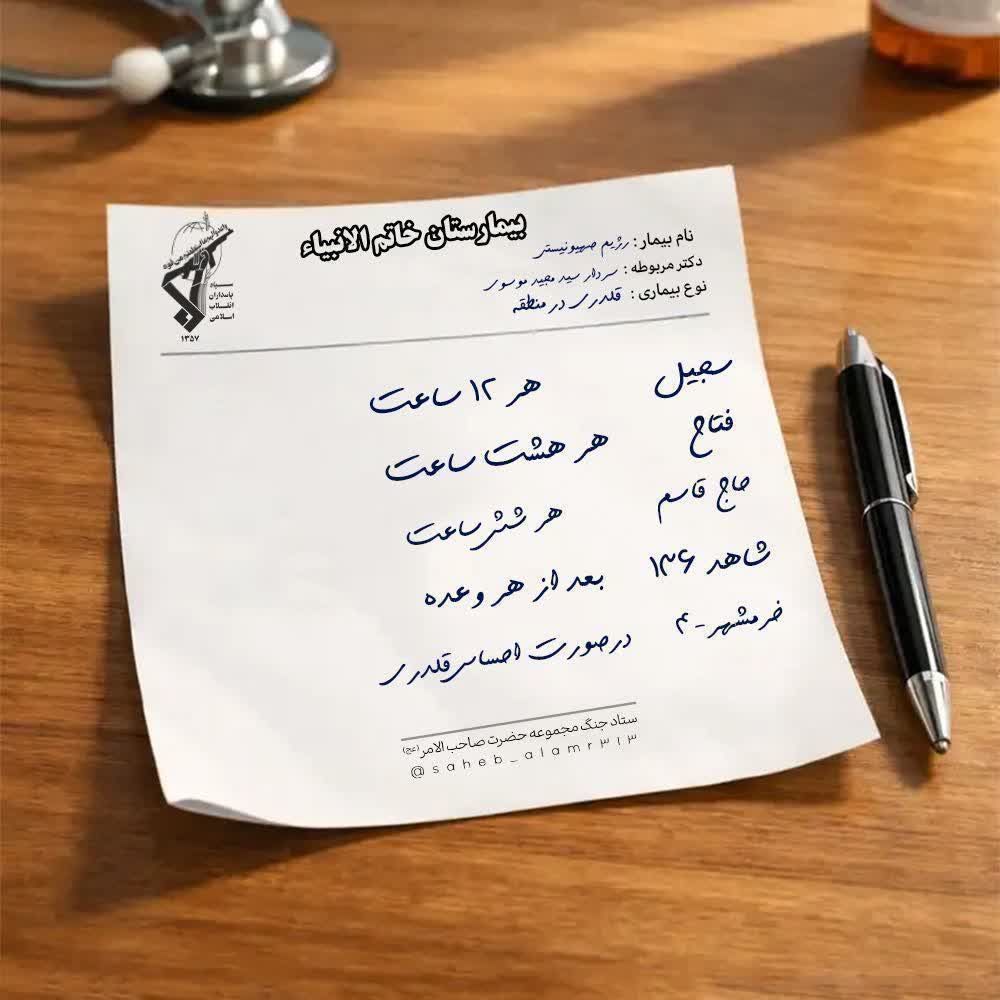 بیمارستان خاتم الانبیاء
نام بیمار : رژیم صهیونیستی
دکتر مربوطه : سردار سید مجید موسوی
نوع بیماری : قلدری در منطقه
سپاه
پاسداران
انقلاب
اسلامی
۱۳۵۷
سجیل هر ۱۲ ساعت
فتاح هر هشت ساعت
حاج قاسم هر شش ساعت
شاهد ۱۳۶ بعد از هر وعده
خرمشهر-۴ درصورت احساس قلدری
ستاد جنگ مجموعه حضرت صاحب الامر (عج)
@saheb_alamr۳۱۳